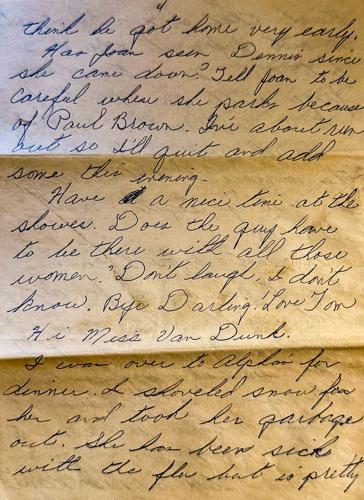 "
think he got home very early.
Has Joan seen Dennis since
she came down? Tell Joan to be
careful where she parks because
of Paul Brown. I've about run
out so I'll quit and add
some this evening.
Have a nice time at the
shower. Does the guy have
to be there with all those
women? Don't laugh, I don't
know. Bye Darling! Love Tom
Hi Miss Van Dunk.
I was over to Alpha's for
dinner. I shoveled snow for
her and took her garbage
out. She has been sick
with the flu but is pretty